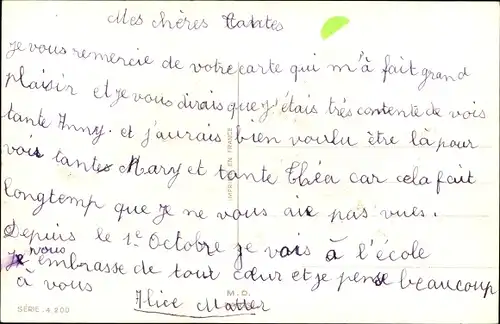 Mes chères tantes
Je vous remercie de votre carte qui m'à fait grand
plaisir et je vous dirais que j'étais très contente de vois
tante Inny. et j'aurais bien voulu être là pour
vois tantes Mary et tante Théa car cela fait
longtemp que je ne vous aie pas vues.
Depuis le 1e Octobre je vais à l'école
je vous embrasse de tout cœur et je pense beaucoup
à vous
Alice Matter
M.D.
SÉRIE. 4.200
IMPRIMÉ EN FRANCE